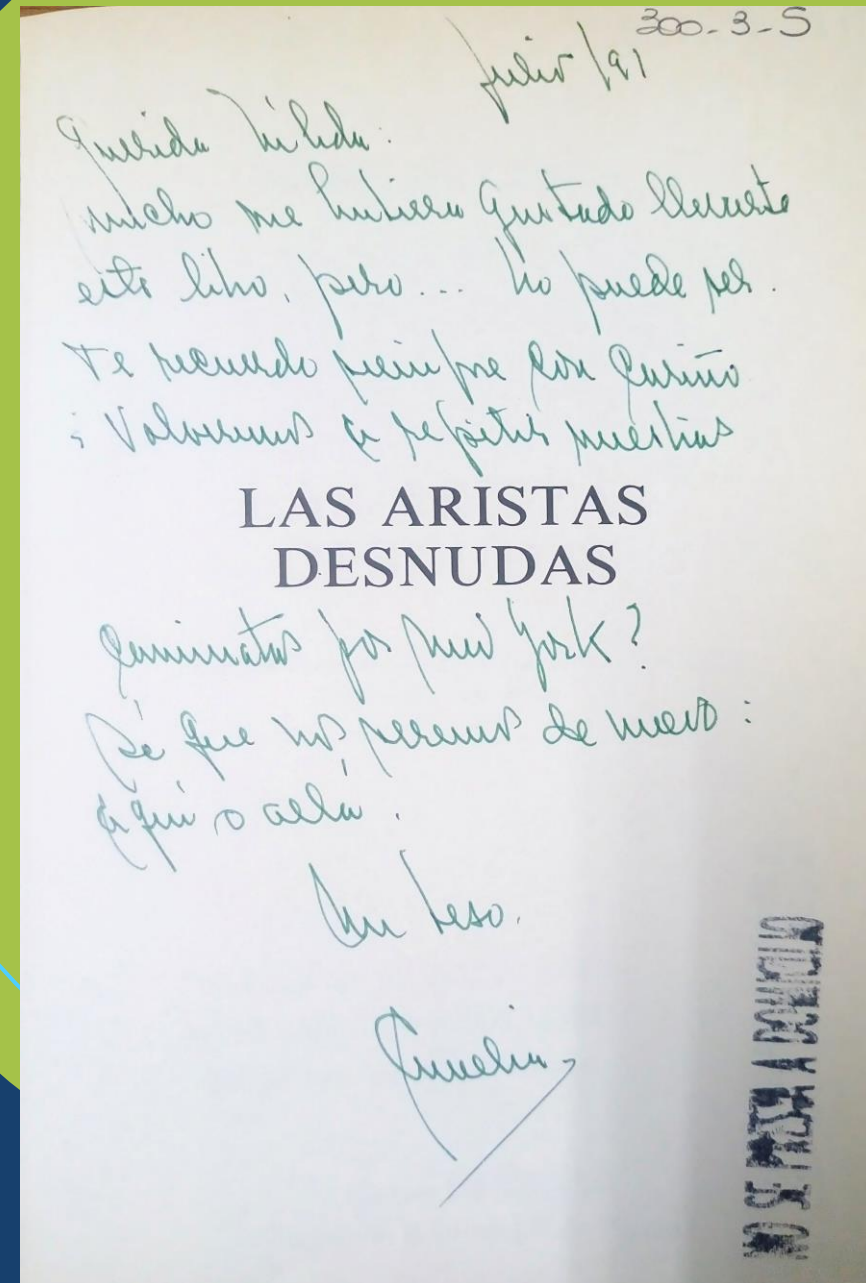 300-3-S
julio/91
Querida Nilda:
mucho me hubiera gustado llevarte
este libro, pero... no puede ser.
Te recuerdo siempre con cariño
¿Volveremos a repetir nuestras
LAS ARISTAS
DESNUDAS
caminatas por New York?
Sé que nos veremos de nuevo:
aquí o allá.
Un beso.
Amelia
NO SE PRESTA A DOMICILIO